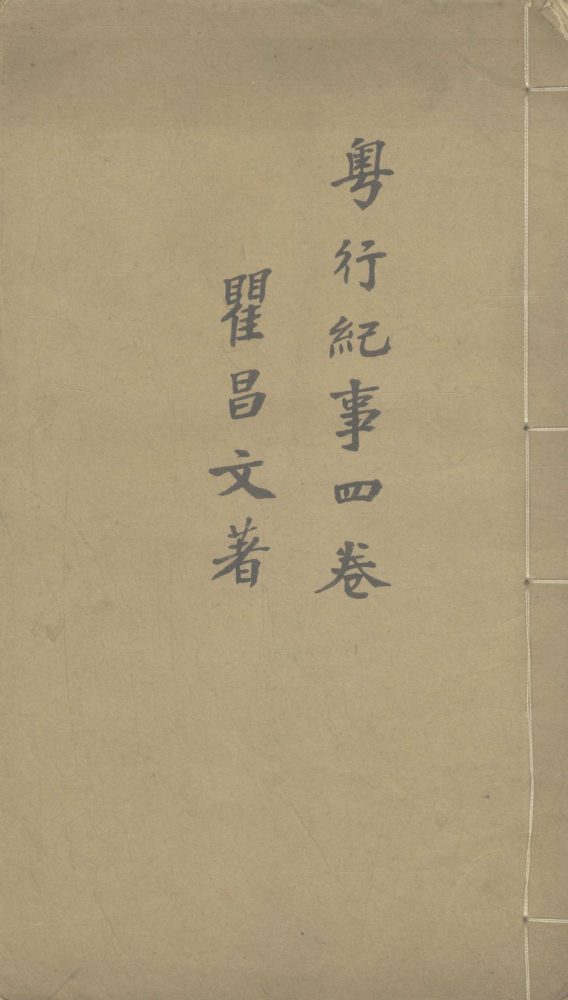 粵行紀事四卷
瞿昌文著